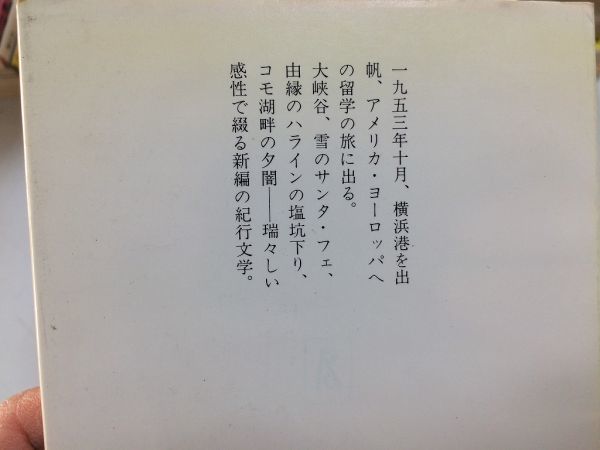 一九五三年十月、横浜港を出
帆、アメリカ・ヨーロッパへ
の留学の旅に出る。
大峡谷、雪のサンタ・フェ、
由縁のハラインの塩坑下り、
コモ湖畔の夕闇──瑞々しい
感性で綴る新編の紀行文学。